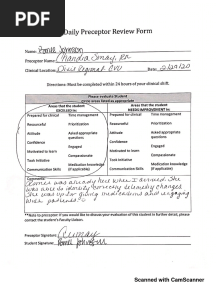 PDF
Daily Preceptor Review Form
Name: Romie Johnson
Preceptor Name: Chandra Smay, RN
Clinical Location: Regional Date: 2/20/20
Directions: Must be completed within 24 hours of your clinical shift.
Please evaluate Student
Circle areas listed as appropriate
Areas that the student EXCELLED in:
Areas that the student NEEDS IMPROVEMENT in:
Prepared for clinical Time management
Prepared for clinical Time management
Resourceful Prioritization
Resourceful Prioritization
Attitude Asked appropriate questions
Attitude Asked appropriate questions
Confidence Engaged
Confidence Engaged
Motivated to learn Compassionate
Motivated to learn Compassionate
Took Initiative Medication knowledge (if applicable)
Took Initiative Medication knowledge (if applicable)
Communication Skills
Communication Skills
Comments:
was already here when I arrived. She
was able to identify correctly telemetry changes.
She was giving medications and engaging
with patients.
**Note to preceptor: If you would like to discuss your evaluation of this student in further detail, please
contact the student's Faculty Liaison.
Preceptor Signature: CSmay
Student Signature: Romie Johnson
Scanned with CamScanner